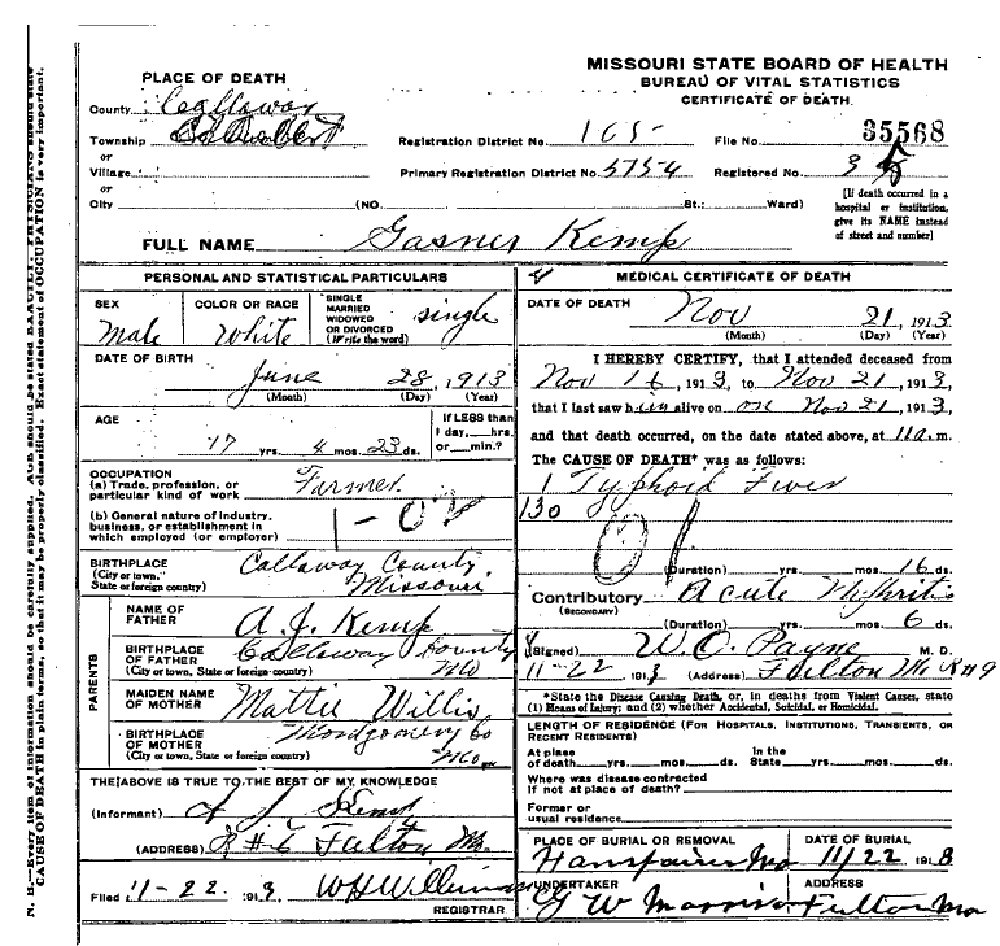 MISSOURI STATE BOARD OF HEALTH
BUREAU OF VITAL STATISTICS
CERTIFICATE OF DEATH
PLACE OF DEATH
County Callaway
Township
or
Village
or
City (NO. St.: Ward)
Registration District No. 165-
File No. 35568
Primary Registration District No. 5754
Registered No. 35
[If death occurred in a
hospital or institution,
give its NAME instead
of street and number]
FULL NAME Gasner Kemp
PERSONAL AND STATISTICAL PARTICULARS
SEX
Male
COLOR OR RACE
White
SINGLE
MARRIED
WIDOWED
OR DIVORCED
(Write the word)
single
DATE OF BIRTH
June 28, 1913
(Month) (Day) (Year)
AGE
17 yrs. 4 mos. 23 ds.
If LESS than
1 day, hrs.
or min.?
OCCUPATION
(a) Trade, profession, or
particular kind of work Farmer.
(b) General nature of industry,
business, or establishment in
which employed (or employer)
BIRTHPLACE
(City or town,
State or foreign country)
Callaway County
Missouri
PARENTS
NAME OF
FATHER A. J. Kemp
BIRTHPLACE
OF FATHER
(City or town, State or foreign country)
Callaway County
Mo
MAIDEN NAME
OF MOTHER Mattie Willis
BIRTHPLACE
OF MOTHER
(City or town, State or foreign country)
Montgomery Co
Mo
THE ABOVE IS TRUE TO THE BEST OF MY KNOWLEDGE
(Informant) A J Kemp
(ADDRESS) R #6 Fulton Mo.
Filed 11-22. 1913
REGISTRAR
MEDICAL CERTIFICATE OF DEATH
DATE OF DEATH
Nov 21, 1913
(Month) (Day) (Year)
I HEREBY CERTIFY, that I attended deceased from
Nov 16, 1913, to Nov 21, 1913,
that I last saw him alive on on Nov 21, 1913,
and that death occurred, on the date stated above, at 11 a.m.
The CAUSE OF DEATH* was as follows:
1 Typhoid Fever
130
(Duration) yrs. mos. 16 ds.
Contributory Acute Nephritis
(SECONDARY)
(Duration) yrs. mos. 6 ds.
(Signed) W. O. Payne M. D.
11-22 1913 (Address) Fulton Mo R#9
*State the Disease Causing Death, or, in deaths from Violent Causes, state
(1) Means of Injury; and (2) whether Accidental, Suicidal, or Homicidal.
LENGTH OF RESIDENCE (FOR HOSPITALS, INSTITUTIONS, TRANSIENTS, OR
RECENT RESIDENTS)
At place
of death yrs. mos. ds.
In the
State yrs. mos. ds.
Where was disease contracted
if not at place of death?
Former or
usual residence
PLACE OF BURIAL OR REMOVAL
Mo
DATE OF BURIAL
11/22 1913
UNDERTAKER
G W Morrison
ADDRESS
Fulton Mo
N. B.—Every item of information should be carefully supplied. AGE should be stated EXACTLY. PHYSICIANS should state
CAUSE OF DEATH in plain terms, so that it may be properly classified. Exact statement of OCCUPATION is very important.